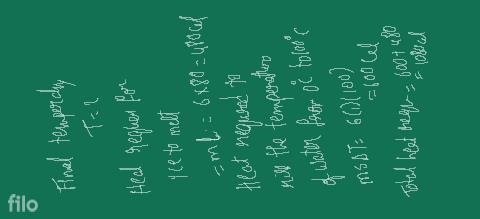 Final temperature
T = ?
Heat required for
ice to melt
= mL = 6×80 = 480 cal
Heat required to
rise the temperature
of water from 0°C to 100°C
msΔT = 6(1)(100)
= 600 cal
Total heat = 600 + 480
= 1080 cal
filo